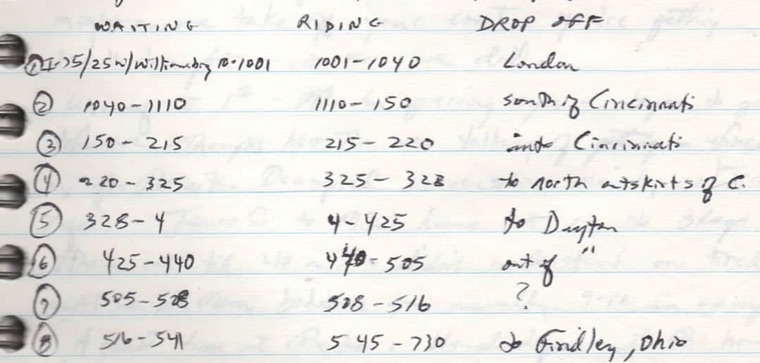 WAITING RIDING DROP OFF
① I-75/25W/Williamsburg 10-1001 1001-1040 London
② 1040-1110 1110-150 south of Cincinnati
③ 150-215 215-220 into Cincinnati
④ 220-325 325-328 to north outskirts of C.
⑤ 328-4 4-425 to Dayton
⑥ 425-440 440-505 out of "
⑦ 505-508 508-516 ?
⑧ 516-541 545-730 to Findley, Ohio